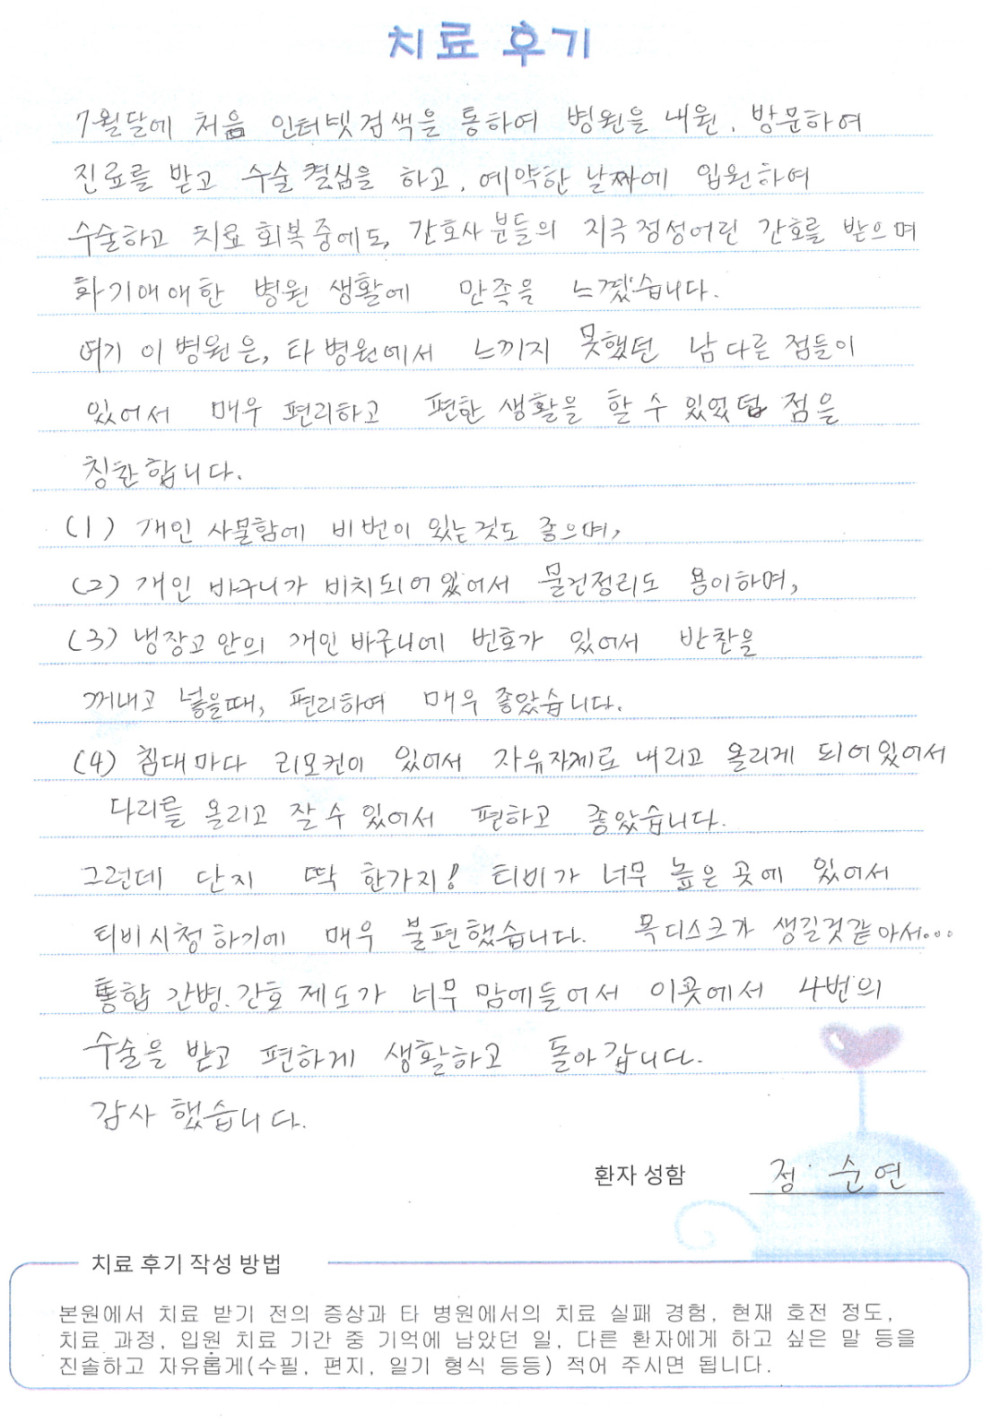 치료 후기
7월달에 처음 인터넷검색을 통하여 병원을 내원. 방문하여
진료를 받고 수술 결심을 하고. 예약한 날짜에 입원하여
수술하고 치료 회복중에도, 간호사분들의 지극정성어린 간호를 받으며
화기애애한 병원 생활에 만족을 느꼈습니다.
여기 이 병원은, 타 병원에서 느끼지 못했던 남다른 점들이
있어서 매우 편리하고 편한 생활을 할 수 있었던 점을
칭찬합니다.
(1) 개인 사물함에 비번이 있는것도 좋으며,
(2) 개인 바구니가 비치되어 있어서 물건정리도 용이하며,
(3) 냉장고 안의 개인 바구니에 번호가 있어서 반찬을
꺼내고 넣을때, 편리하여 매우 좋았습니다.
(4) 침대마다 리모컨이 있어서 자유자제로 내리고 올리게 되어있어서
다리를 올리고 잘 수 있어서 편하고 좋았습니다.
그런데 단지 딱 한가지! 티비가 너무 높은 곳에 있어서
티비시청하기에 매우 불편했습니다. 목디스크가 생길것같아서...
통합 간병.간호 제도가 너무 맘에들어서 이곳에서 4번의
수술을 받고 편하게 생활하고 돌아갑니다.
감사했습니다.
환자 성함 정 순연
치료 후기 작성 방법
본원에서 치료 받기 전의 증상과 타 병원에서의 치료 실패 경험, 현재 호전 정도,
치료 과정, 입원 치료 기간 중 기억에 남았던 일, 다른 환자에게 하고 싶은 말 등을
진솔하고 자유롭게(수필, 편지, 일기 형식 등등) 적어 주시면 됩니다.